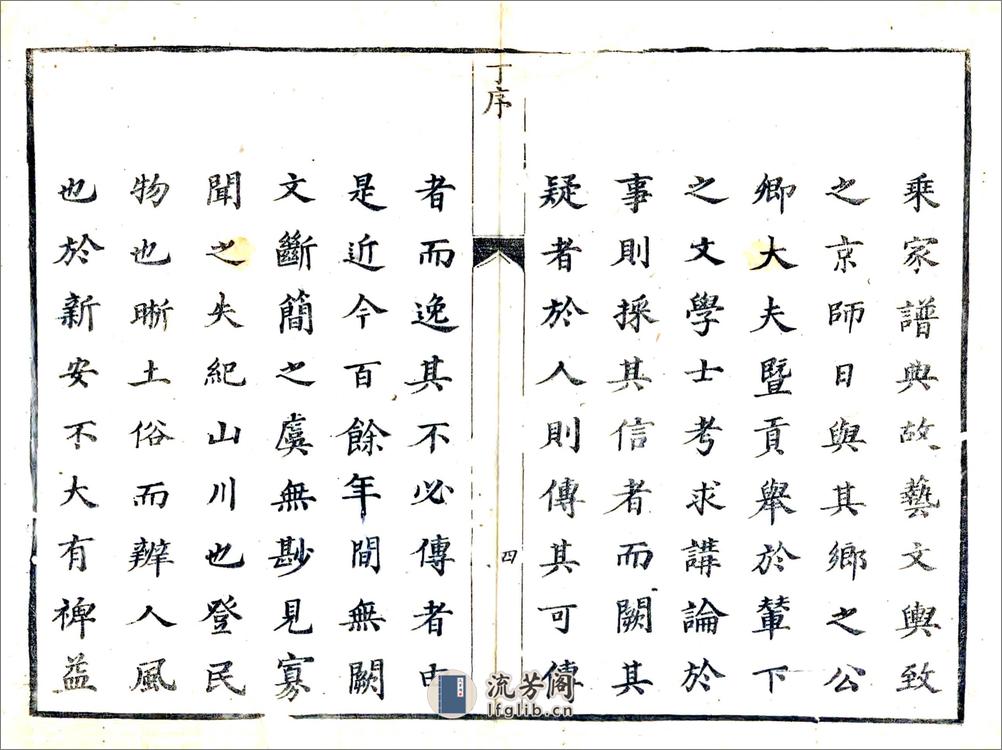 乘家譜典故藝文輿致
之京師日與其鄉之公
卿大夫暨貢舉於輦下
之文學士考求講論於
事則採其信者而闕其
疑者於人則傳其可傳
丁序
四
者而逸其不必傳者由
是近今百餘年間無闕
文斷簡之虞無尠見寡
聞之失紀山川也登民
物也晰土俗而辨人風
也於新安不大有裨益
流芳阁
lfglib.cn